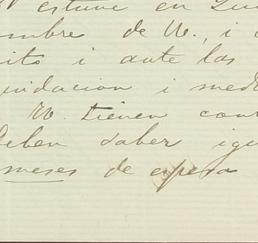 estuve en
ombre de W., i
ito i ante las
uidacion i med
W. tienen con
deben saber igu
meses de espera